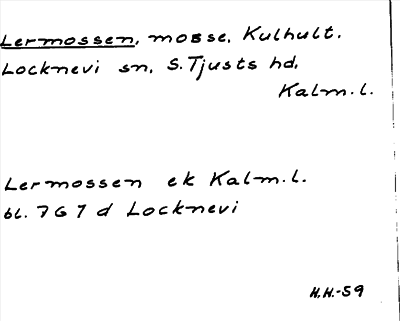 Lermossen, mosse, Kulhult.
Locknevi sn, S. Tjusts hd.
Kalm. l.
Lermossen ek Kalm. l.
bl. 7 G 7 d Locknevi
H.H.-59